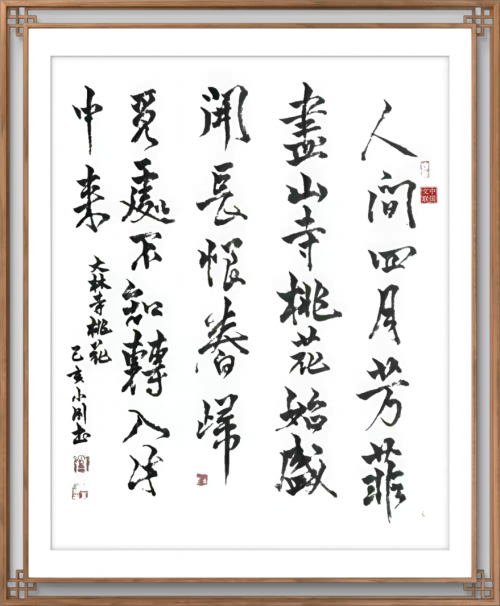 人間四月芳菲
盡山寺桃花始盛
開長恨春歸
覓處不知轉入此
中來
大林寺桃花
己亥小刚书
中国文联